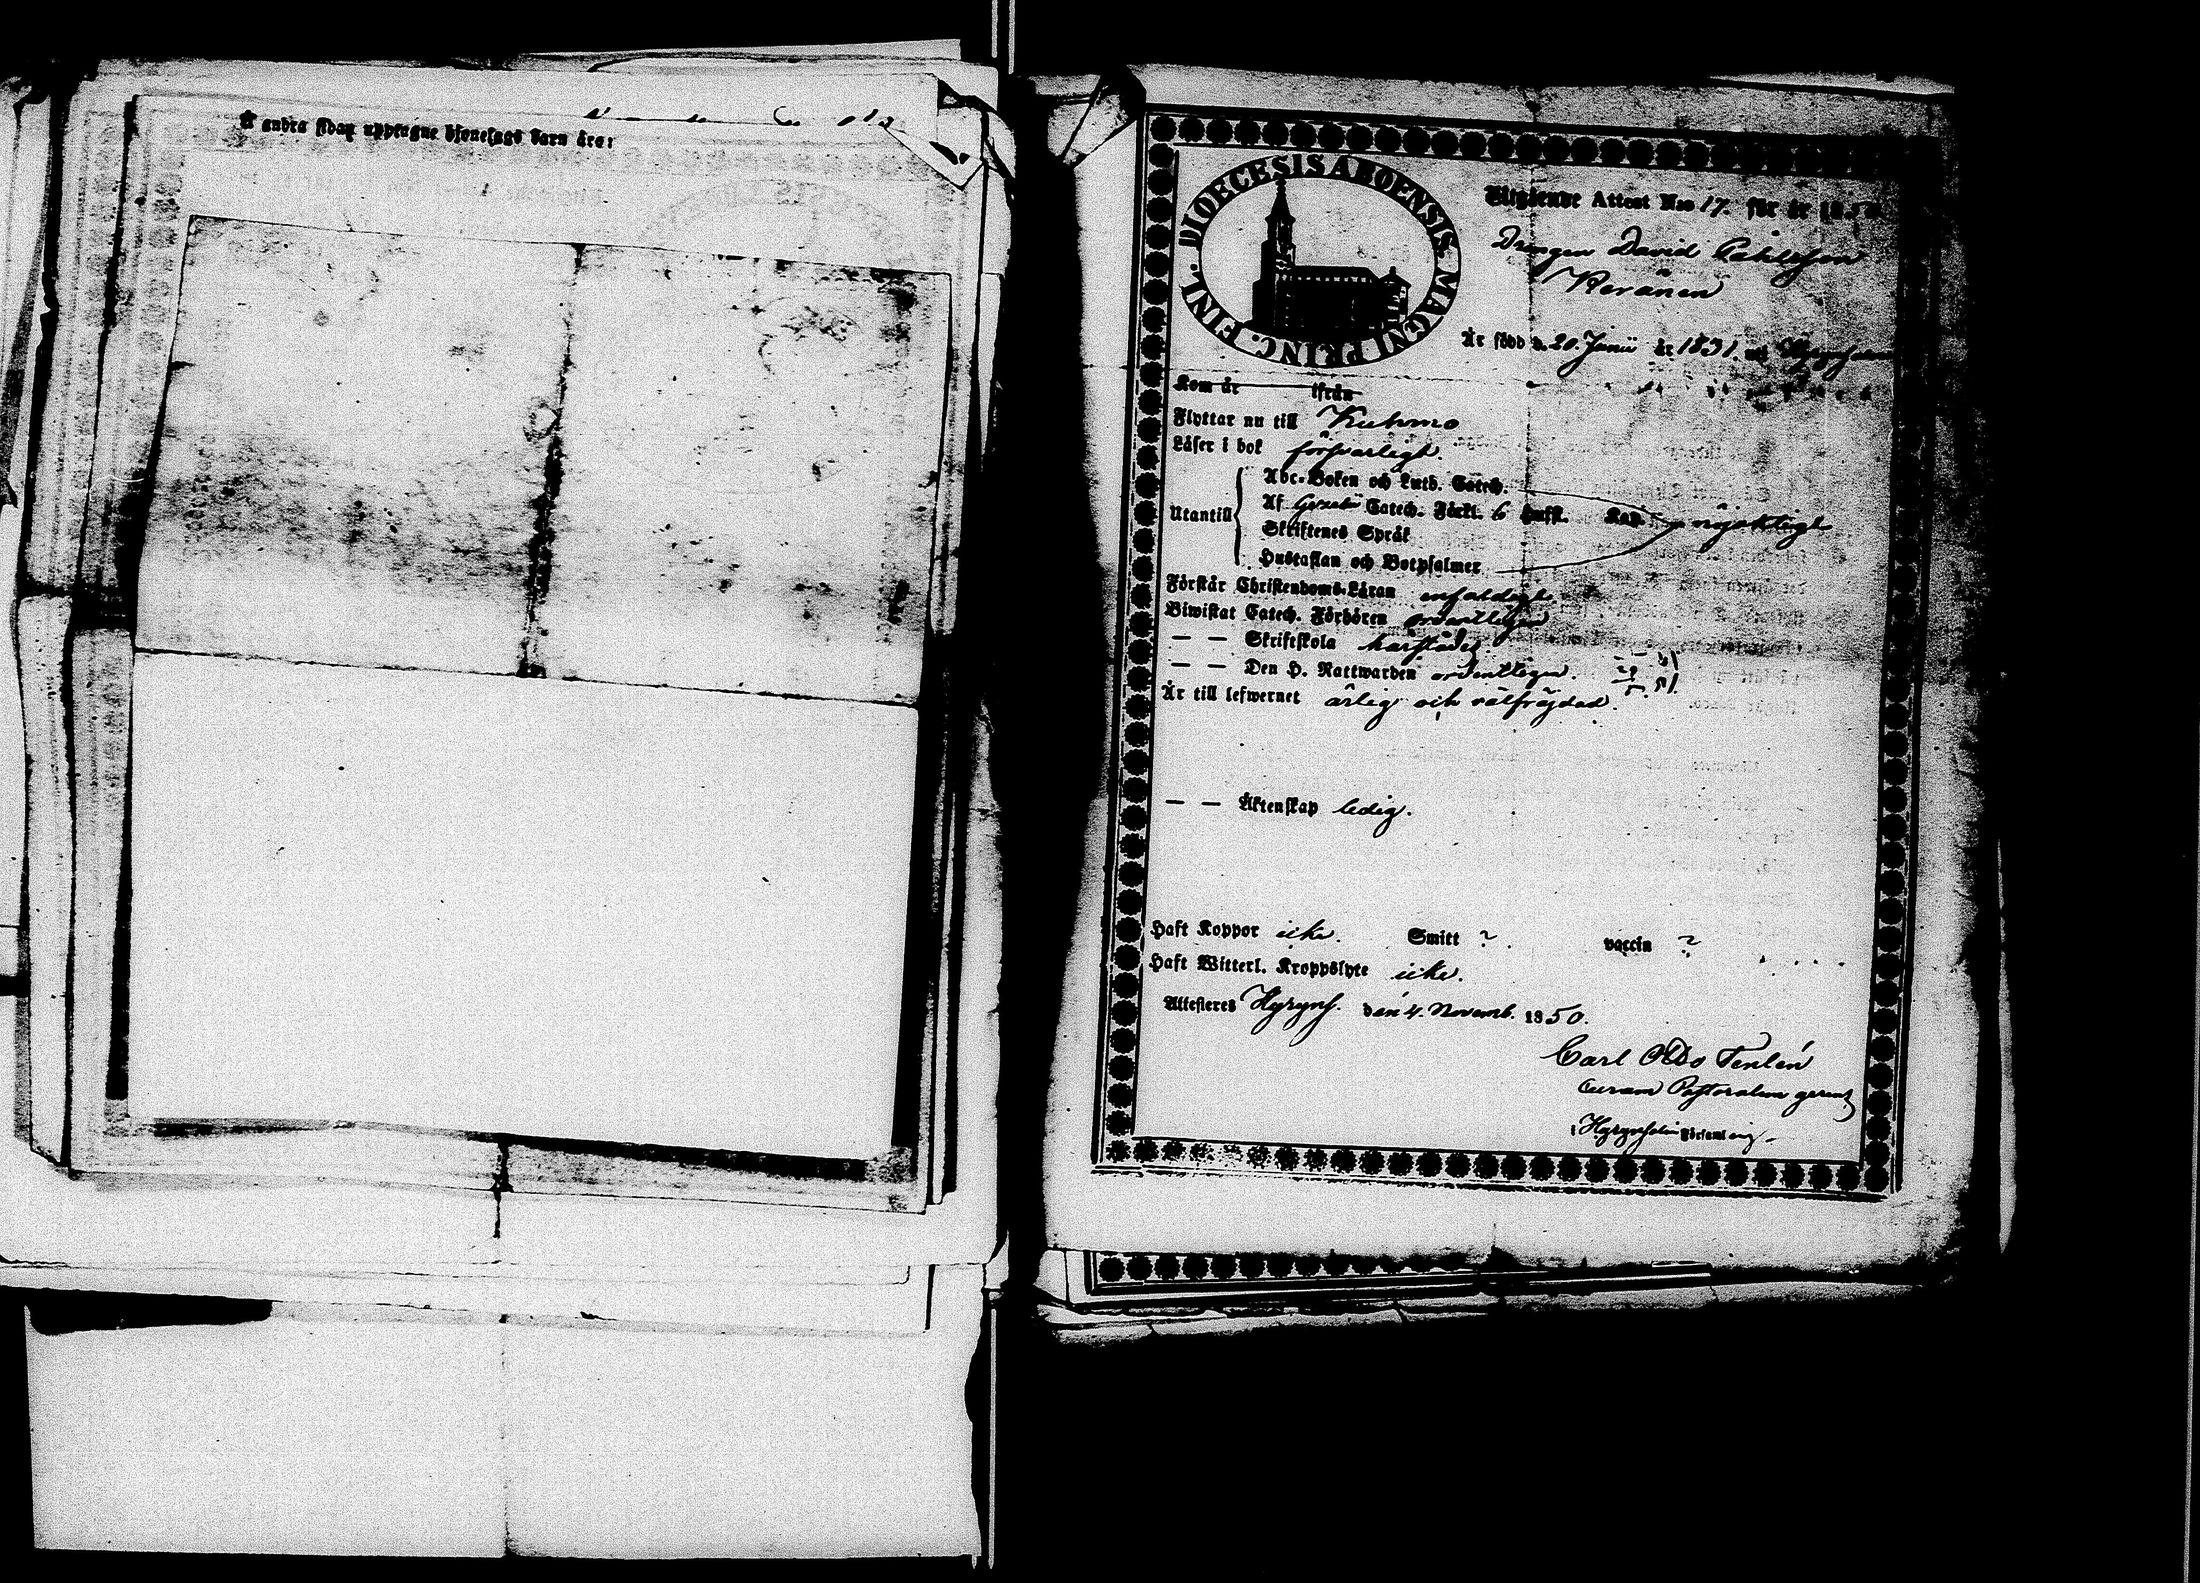 Å andra sidan upptagne Ösenelags barn äro:
DIOECESIS ABOENSIS. MAGNI PRINC. FINL.
Utgående Attest N:o 17. för år 1850
Drengen David Pahlsson
Keränen
Är född d. 20. Junii år 1831. uti
Kom år ifrån
Flyttar nu till Kuhmo
Läser i bok försvarligt.
Utantill
Abc-Boken och Luth. Catech.
Af Catech. Förkl. 6 Hufst. Kap. nöjaktigt
Skriftenes Språk
Hustaflan och Botpsalmer
Förstår Christendoms-Läran enfaldigt
Biwistat Catech. Förhören ordentligen
— — Skriftskola härstädes.
— — Den H. Nattwarden ordentligen.
Är till lefwernet ärlig och välfräjdad.
— — Äktenskap ledig.
Haft Koppor icke. Smitt ? vaccin ?
Haft Witterl. Kroppslyte icke.
Attesteres Hyryns. den 4. Novemb. 1850.
Carl Otto Tenlén
Curam Pastoralem gerens
i Hyrynsalmi Församling.